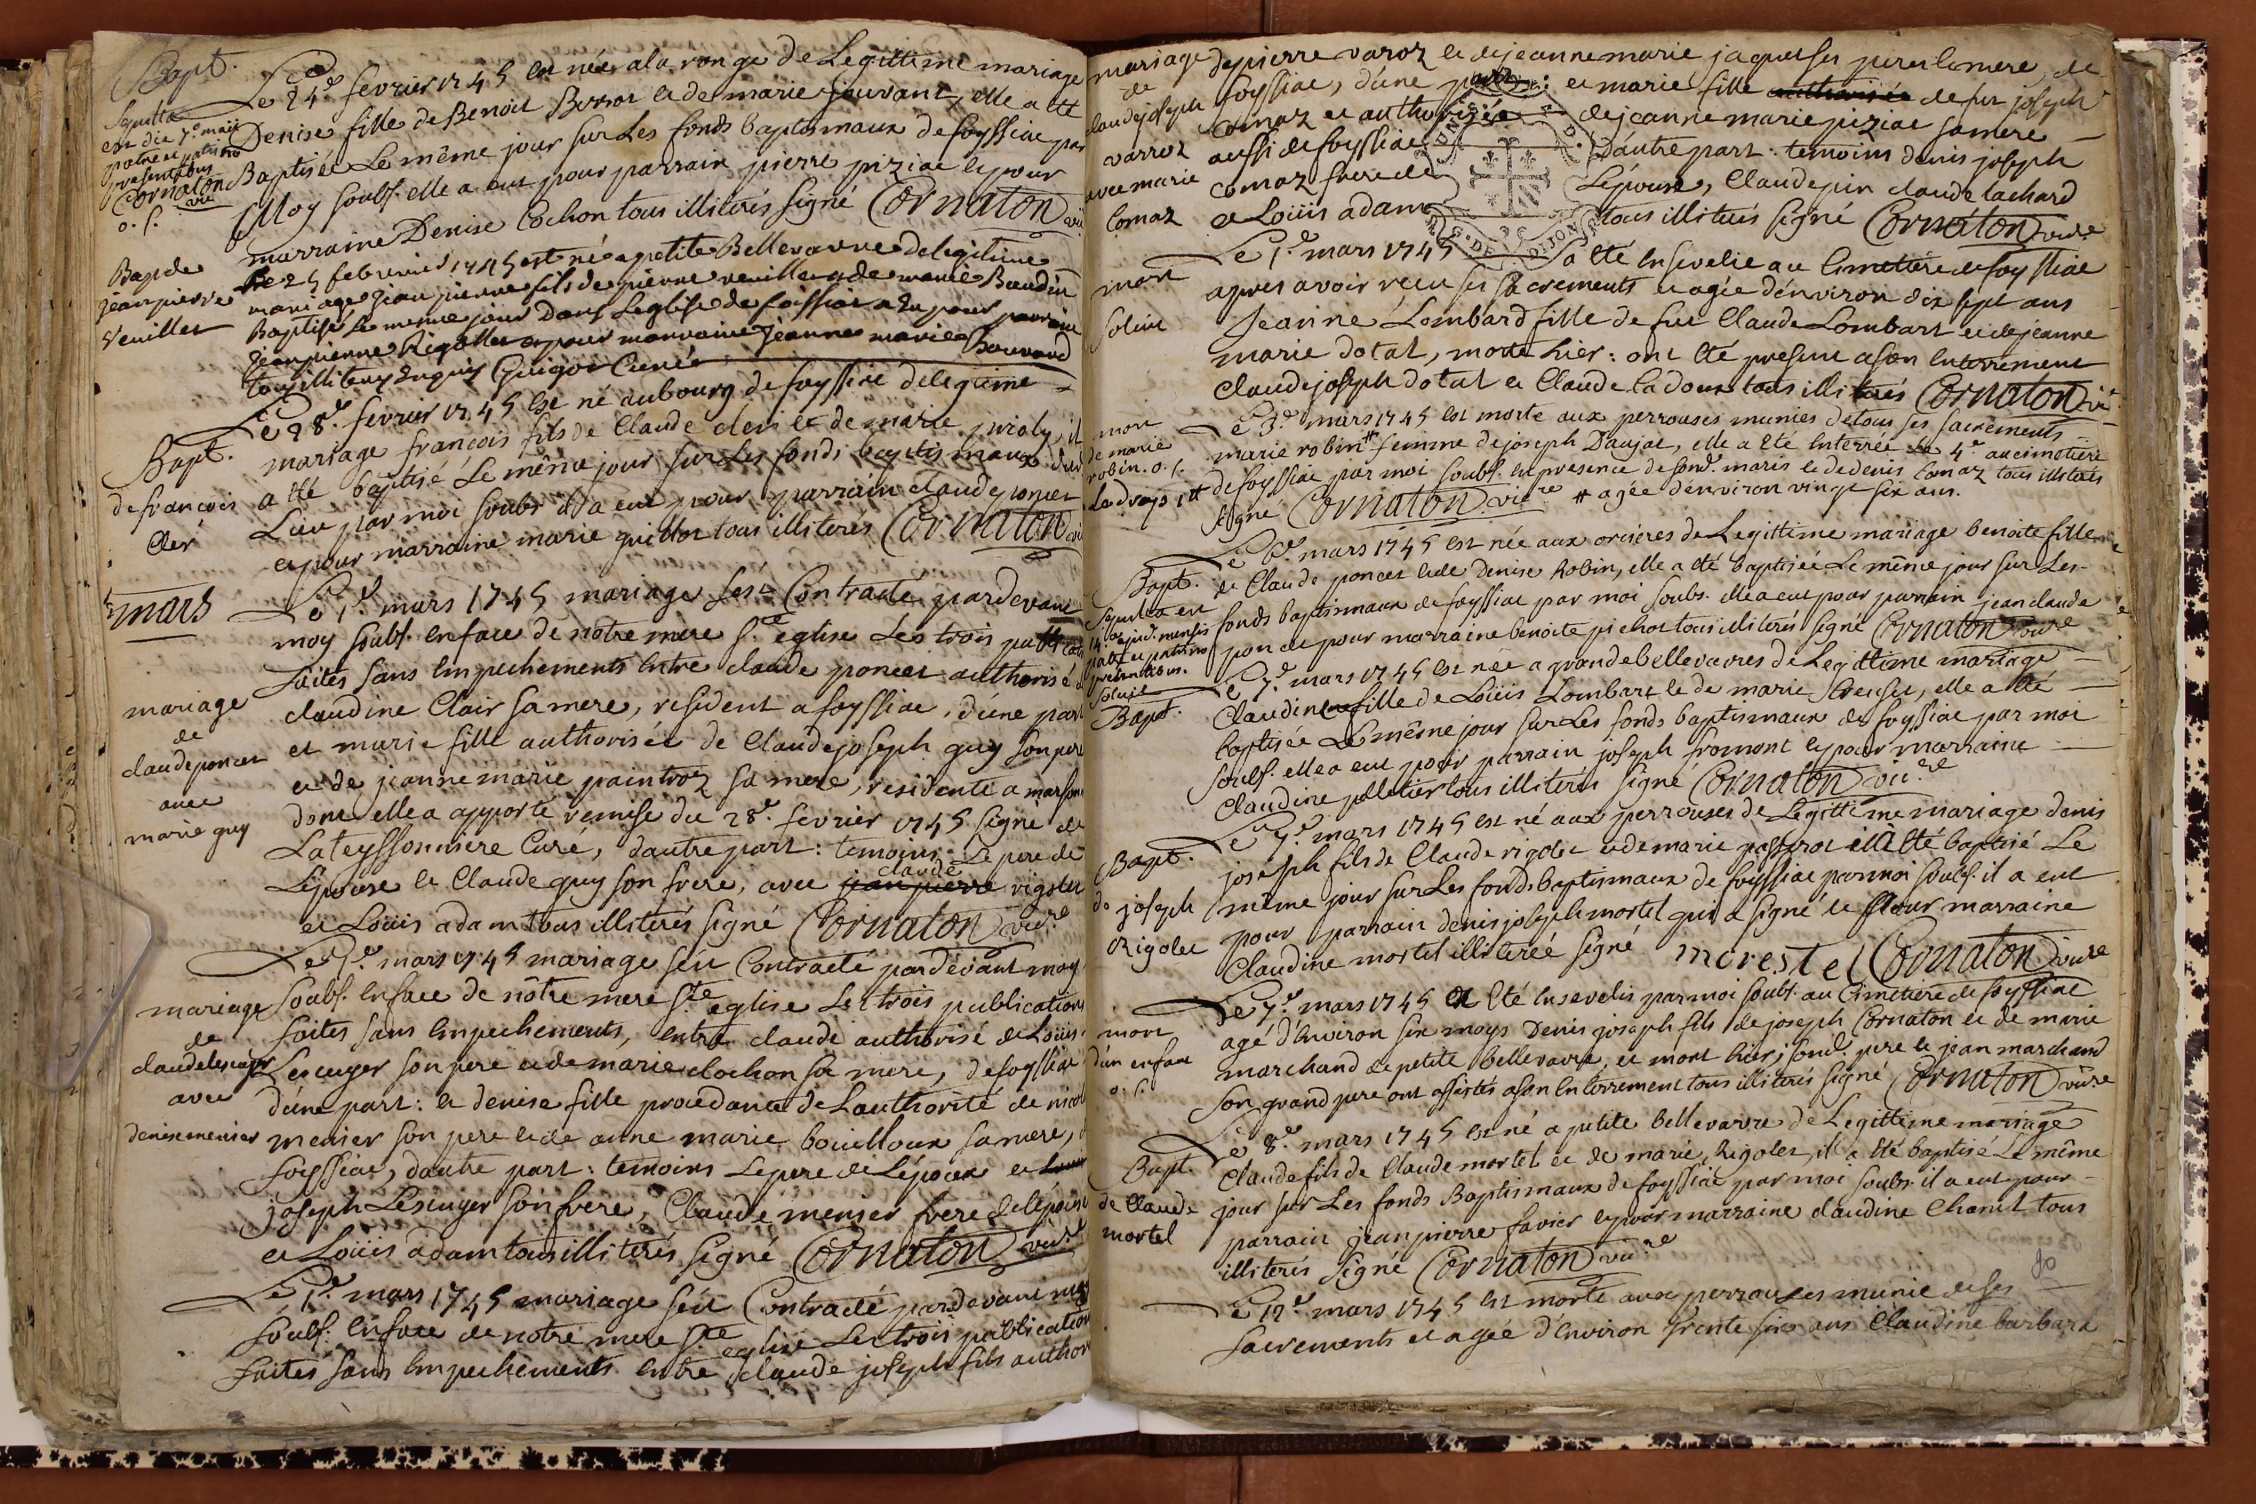 Bapt.
Sepulta
est die 7.e maii
patre et patrino
presentibus
Cornaton
vic
o. s.
Le 24.e fevrier 1745 est née a la ronge de Legittime mariage
Denise fille de Benoit Borrot et de marie jouvant, elle a eté
Baptisée Le même jour sur Les fonds baptismaux de foyssiac par
Moy soubs. elle a eut pour parrain pierre piziac et pour
marraine Denise Cochon tous illiterés signé Cornaton vic
Bap de
jean pierre
Veuillet
Le 25 febvrier 1745 est né a petite Bellevavre de legitime
mariage jean pierre fils de pierre veuillet et de marie Baudin
Baptisé le meme jour Dans l'eglise de foissiat a Eu pour parrain
jean pierre Rigollet et pour marraine jeanne marie Bouvard
tous illiterés Enquis Guigot Curé
Bapt.
de françois
Cler
Le 28.e fevrier 1745 est né au bourg de foyssiac de legitime
mariage françois fils de Claude clerc et de marie piroly, il
a eté baptisé Le même jour sur Les fonds baptismaux dud
Lieu par moi soubs. il a eut pour parrain claude poncet
et pour marraine marie guillot tous illiterés Cornaton vic
mars
mariage
de
claude poncet
avec
marie guy
Le 1.e mars 1745 mariage sest Contracté pardevant
moy soubs. en face de notre mere s.te eglise Les trois publications
faites sans Empechements Entre claude poncet authorisé de
claudine Clair sa mere, resident a foyssiac, d'une part
et marie fille authorisée de Claude joseph guy son pere
et de jeanne marie paintroz sa mere, residente a marsonn
dont elle a apporté remise du 28.e fevrier 1745 signé de
Lateyssonniere Curé, dautre part: temoins Le pere de
claude
L'epouse et Claude guy son frere, avec jean pierre rigolet
et Loüis adam tous illiterés signé Cornaton vic.re
mariage
de
claude lescuyer
avec
denise menier
Le 1.e mars 1745 mariage seit Contracté pardevant moy
soubs. en face de nôtre mere s.te eglise Les trois publications
faites sans Empechements, entre claude authorisé de Loüis
Lescuyer son pere et de marie clochon sa mere, de foyssiac
d'une part: et denise fille procedante de Lauthorité de nicol
menier son pere et de anne marie bouilloux sa mere, de
foyssiac, dautre part: temoins Le pere de L'epoux et Loüis
joseph Lescuyer son frere, Claude menier frere de lépouse
et Loüis adam tous illiterés, signé Cornaton vic.re
Le 1.e mars 1745 mariage seit Contracté pardevant moy
soubs. en face de notre mere s.te eglise Les trois publications
faites sans Empechements entre claude joseph fils author
mariage
de
claude joseph
varroz
avec marie
Comaz
de pierre varoz et de jeanne marie jaquet ses pere et mere, de
foyssiac, d'une part: et marie fille authorisée de fut joseph
Comaz et authorizée de jeanne marie piziac sa mere
aussi de foyssiac D'autre part: temoins denis joseph
Comaz frere de L'épouse, Claude pin claude lachard
et Loüis adam tous illiterés signé Cornaton vic.re
G. DE DIJON
mort
Solvit
Le 1.e mars 1745 a eté Ensevelie au Cimettiere de foyssiac
apres avoir reçu ses sacrements et agée d'environ dix sept ans
Jeanne Lombard fille de fut Claude Lombart et de jeanne
marie dotal, morte hier: ont eté present a son Enterrement
Claude joseph dotal et Claude ladoux tous illiterés Cornaton vic.
mort
de marie
robin. o. s.
Le drap 1tt
Le 3.e mars 1745 est morte aux perrouses munies de tous ses sacrements
marie robin # femme de joseph Daujat, elle a eté Enterrée Le 4.e au cimetiere
de foyssiac par moi soubs. en presence de sond. maris et de denis Comaz tous illiterés
signé Cornaton vic.re # agée d'environ vingt six ans.
Bapt.
Sepulta est
14.a ejusd. mensis
patre et patrino
presentibus.
Solvit
Le 6.e mars 1745 est née aux orcieres de Legittime mariage benoite fille
de Claude poncet et de Denise Robin, elle a eté baptisée Le même jour sur Les
fonds baptismaux de foyssiac par moi soubs. elle a eut pour parrain jean claude
poncet pour marraine benoite pichot tous illiterés signé Cornaton vic.re
Bapt.
Le 7.e mars 1745 est née a grande bellevavres de Legittime mariage
Claudine fille de Loüis Lombart et de marie Creuset, elle a eté
baptisée Le même jour sur Les fonds baptismaux de foyssiac par moi
soubs. elle a eut pour parrain joseph fromont et pour marraine
Claudine pelletier tous illiterés signé Cornaton vic.re
Bapt.
de joseph
Rigolet
Le 7.e mars 1745 est né aux perrouses de Legittime mariage denis
joseph fils de Claude rigolet et de marie passerat il a eté baptisé Le
même jour sur Les fonds baptismaux de foyssiac par moi soubs. il a eut
pour parrain denis joseph mortel qui a signé et pour marraine
Claudine mortel illiterée signé morestel Cornaton vic.re
mort
d'un enfant
o. s.
Le 7.e mars 1745 a Eté Ensevelis par moi soubs. au Cimetiere de foyssiac
agé d'environ six moys Denis joseph fils de joseph Cornaton et de marie
marchand de petite bellevavre, et mort hier; sond. pere et jean marchand
son grand pere ont assistés a son Enterrement tous illiterés signé Cornaton vic.re
Bapt.
de Claude
mortel
Le 8.e mars 1745 est né a petite bellevavre de Legittime mariage
Claude fils de Claude mortel et de marie Rigolet, il a eté baptisé Le même
jour sur Les fonds Baptismaux de foyssiac par moi soubs. il a eut pour
parrain jean pierre favier et pour marraine claudine Chanel tous
illiterés signé Cornaton vic.re
Le 12.e mars 1745 est morte aux perrouses munie de ses
sacrements et agée d'Environ trente six ans Claudine barbara